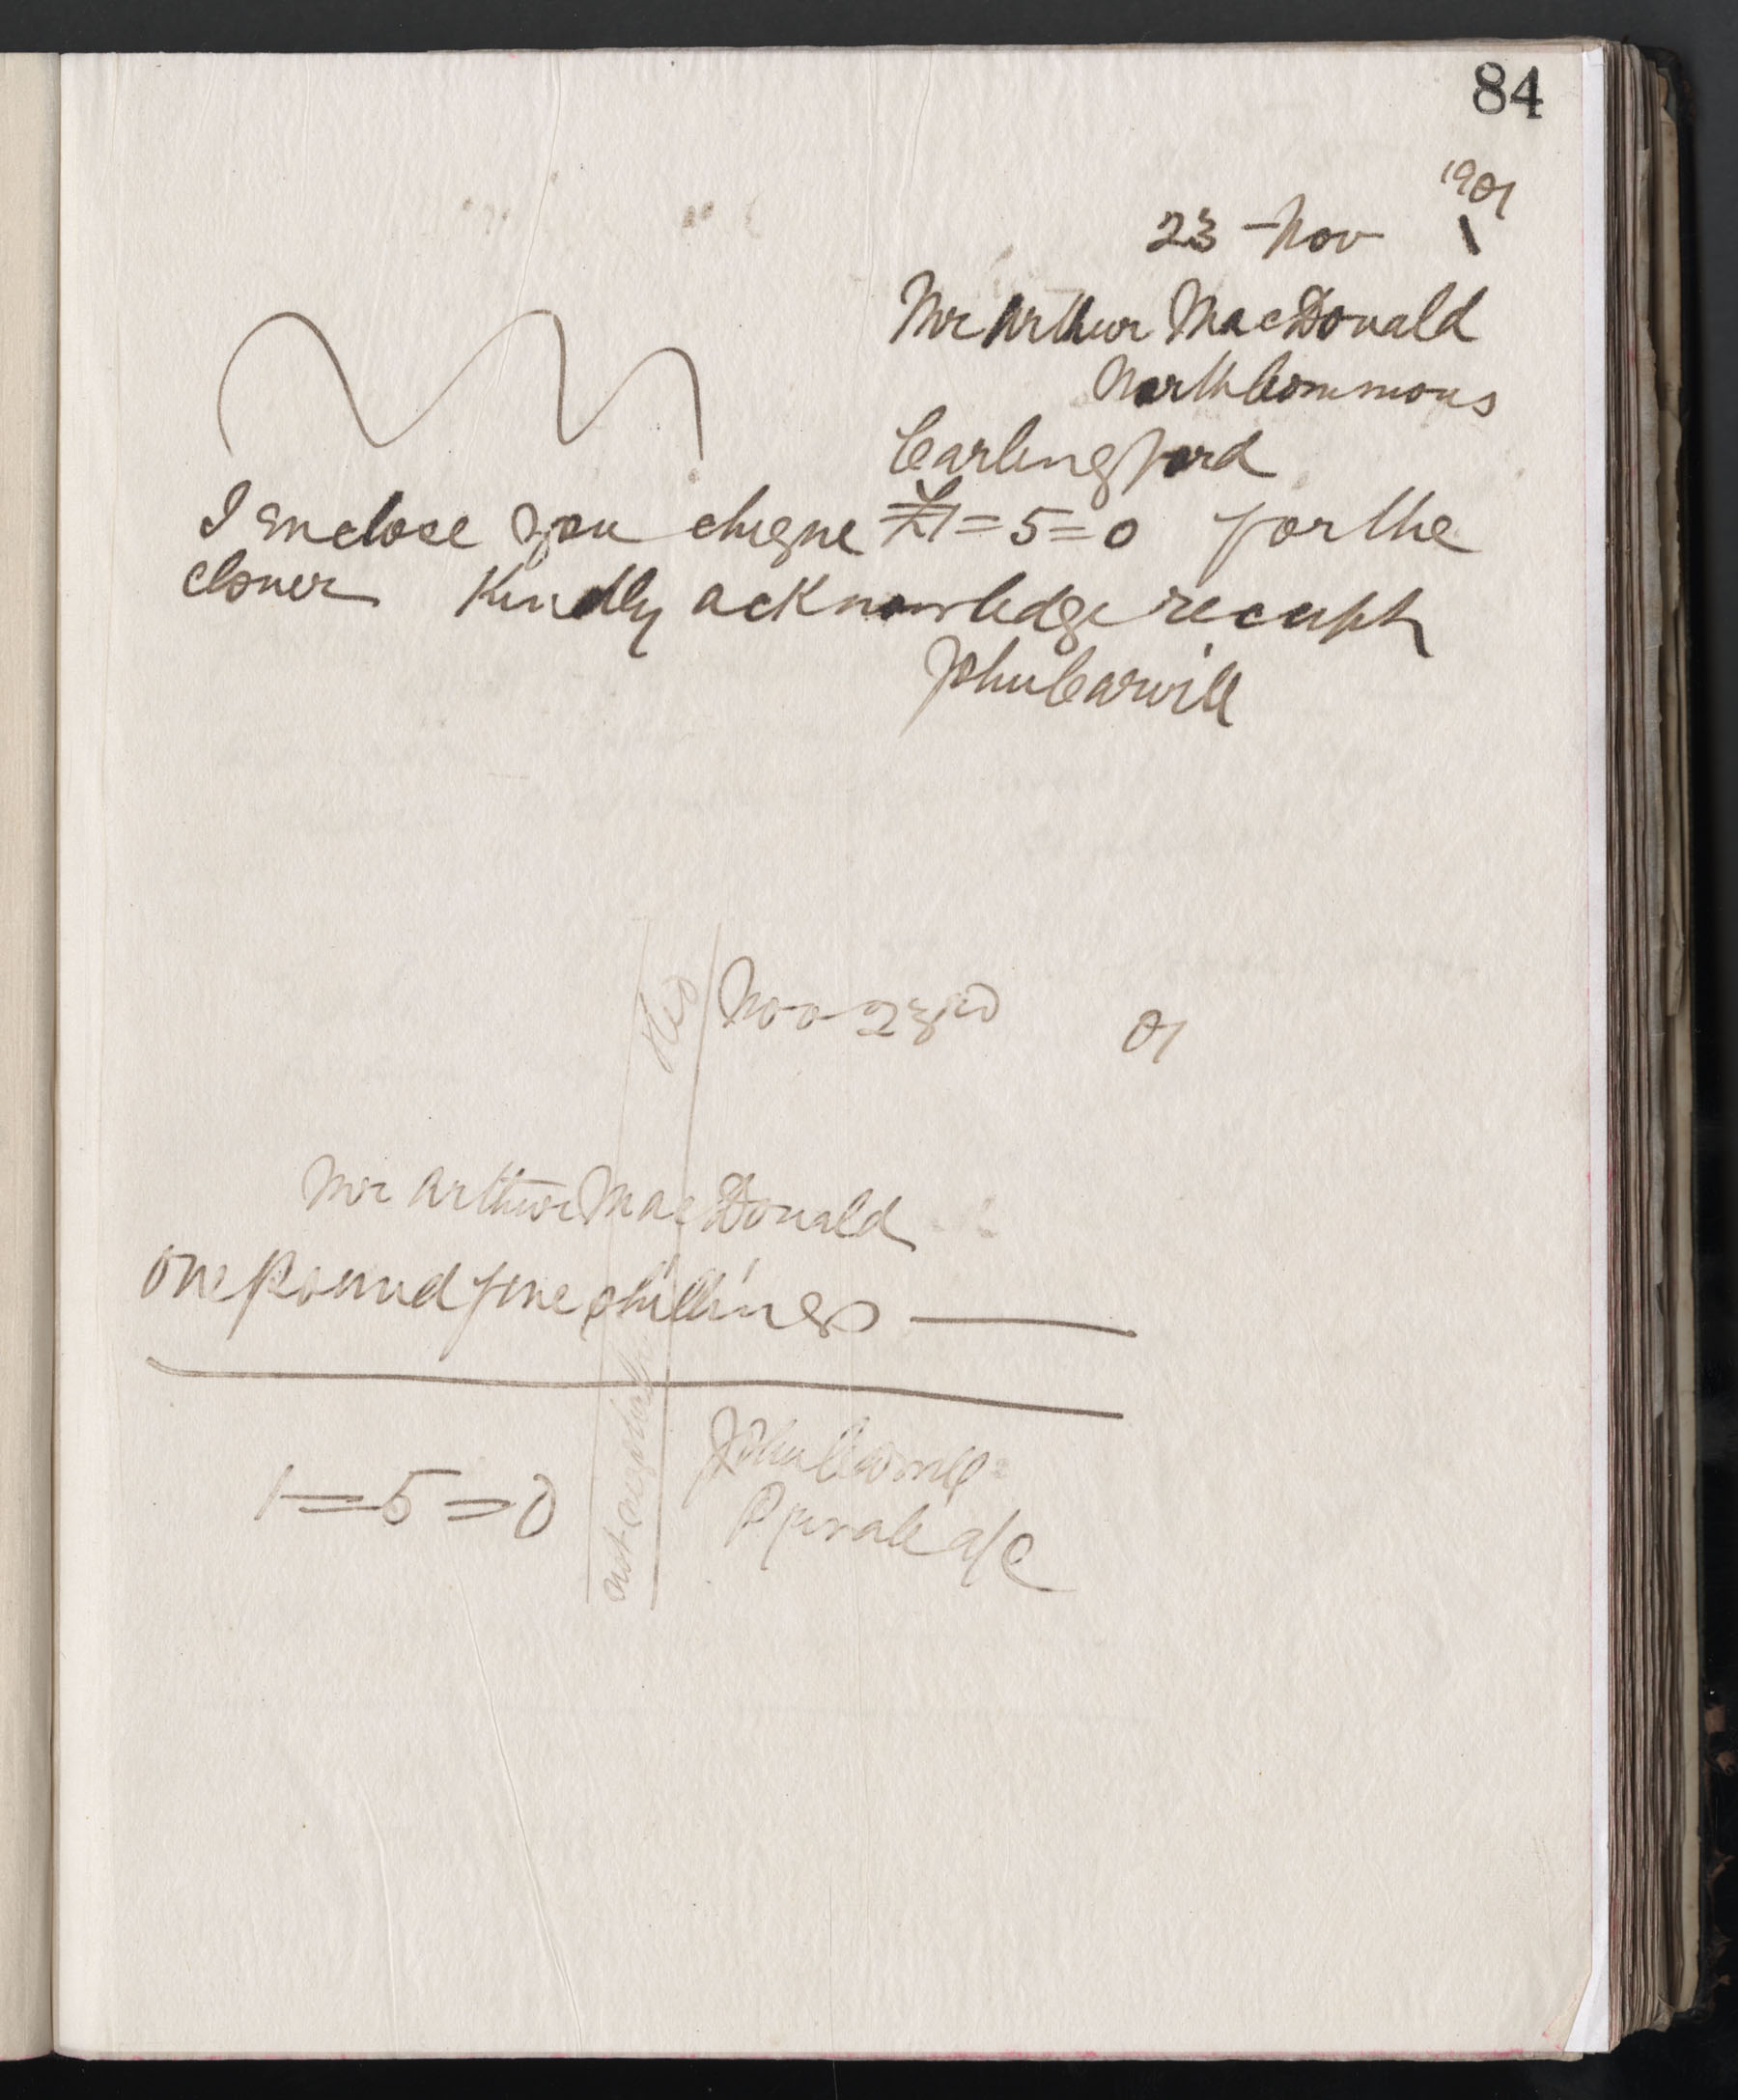 84
1901
23 - Nov
Mr Arthur MacDonald
North Commons
Carlingford
I enclose you cheque £1=5=0 for the
clover Kindly acknowledge receipt
John Carvill
Nov 23rd 01
Mr Arthur MacDonald
One Pound five shillings
John Carvill
1=5=0
Private a/c
not negotiable